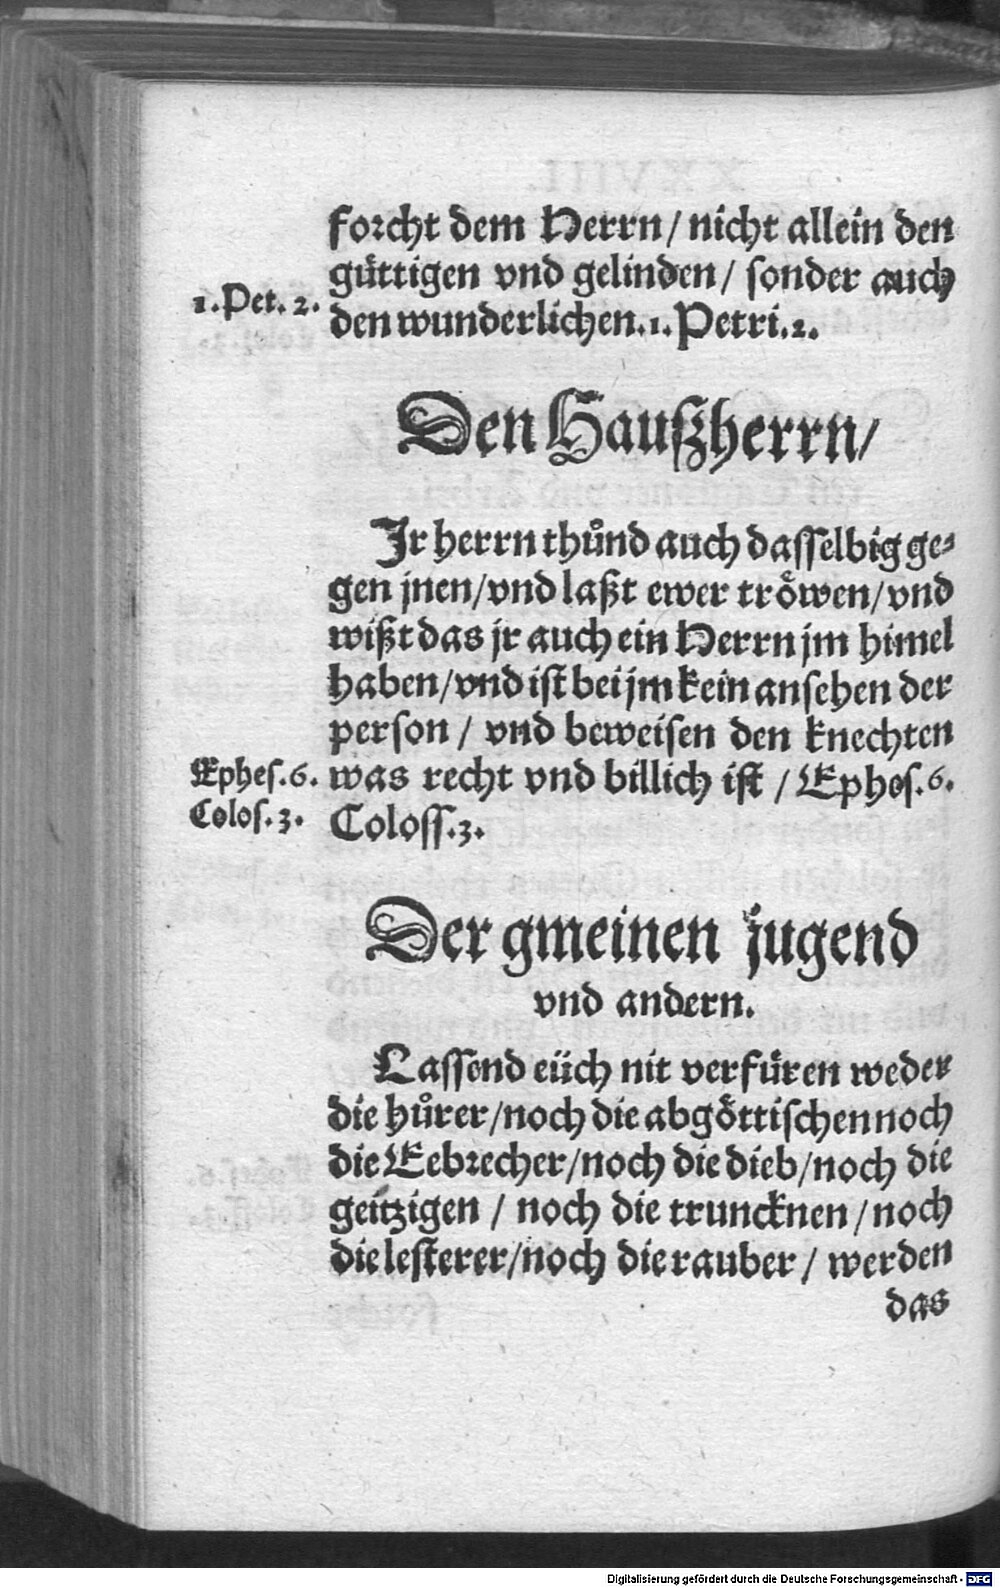 forcht dem Herrn / nicht allein den
güttigen vnd gelinden / sonder auch
1. Pet. 2.
den wunderlichen. 1. Petri. 2.
Den Haußherrn /
Jr herrn thůnd auch dasselbig ge⸗
gen jnen / vnd laßt ewer trôwen / vnd
wißt das jr auch ein Herrn jm himel
haben / vnd ist bei jm kein ansehen der
person / vnd beweisen den knechten
Ephes. 6.
was recht vnd billich ist / Ephes. 6.
Colos. 3.
Coloss. 3.
Der gmeinen jugend
vnd andern.
Lassend eüch nit verfüren weder
die hůrer / noch die abgöttischen noch
die Eebrecher / noch die dieb / noch die
geitzigen / noch die truncknen / noch
die lesterer / noch die rauber / werden
das
Digitalisierung gefördert durch die Deutsche Forschungsgemeinschaft - DFG